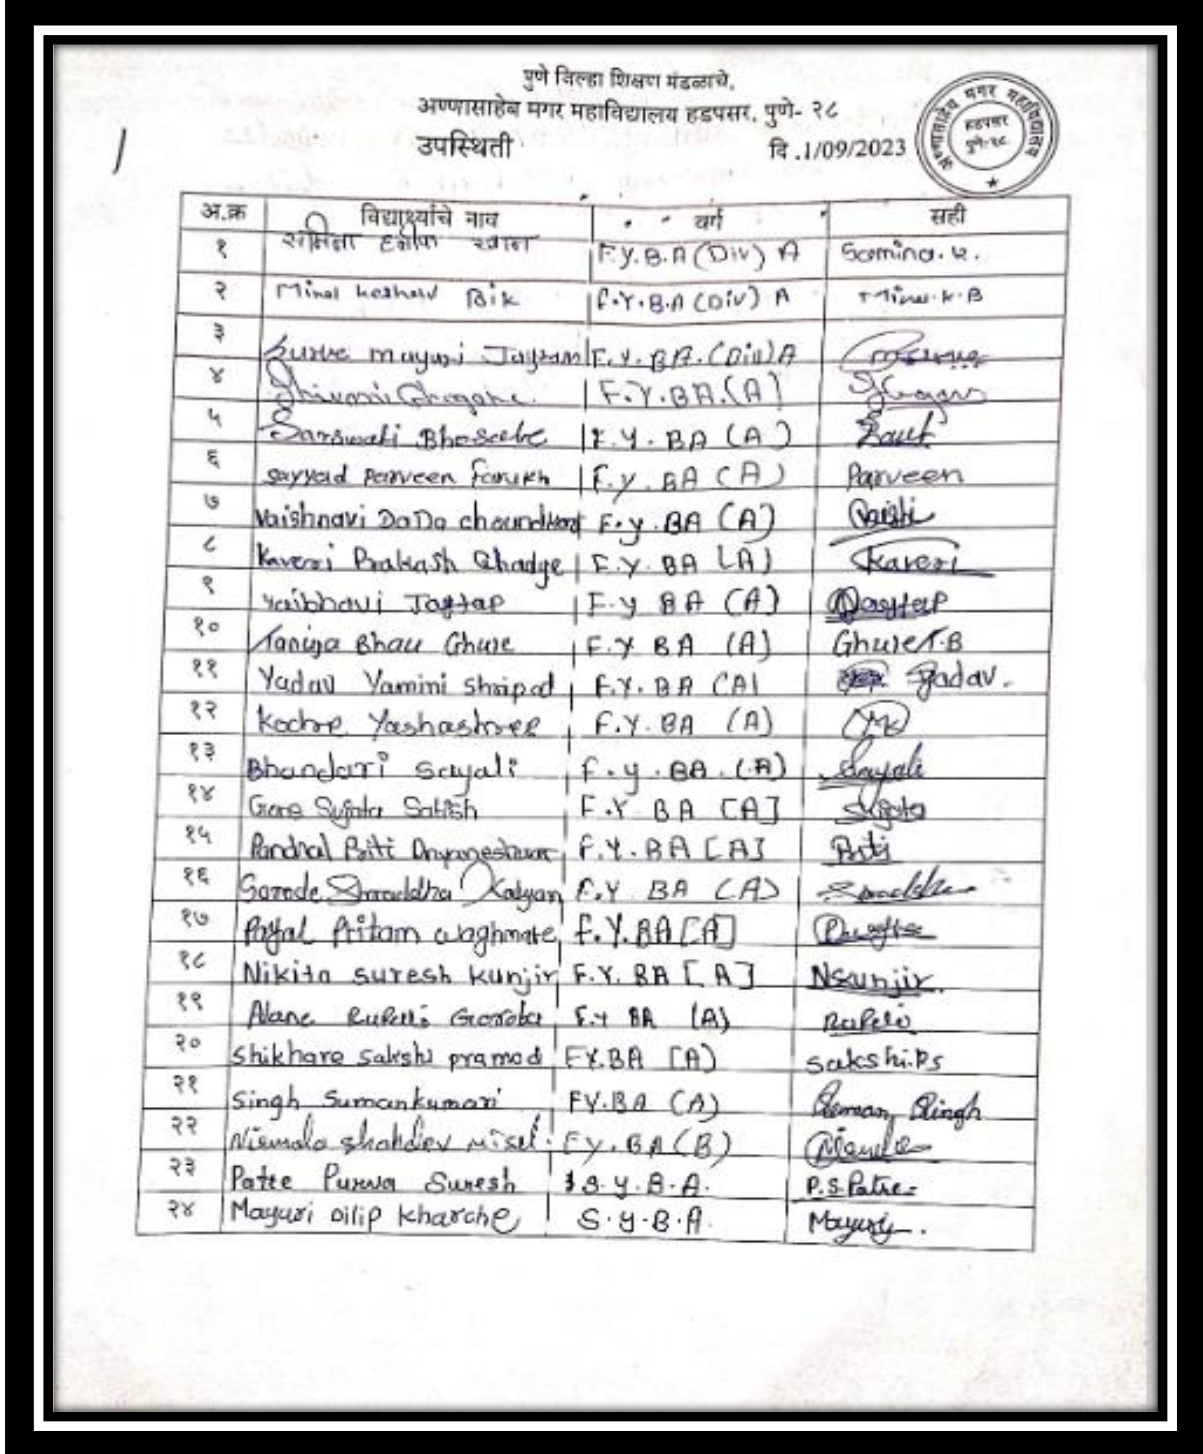 पुणे जिल्हा शिक्षण मंडळाचे,
अण्णासाहेब मगर महाविद्यालय हडपसर, पुणे- २८
उपस्थिती दि .1/09/2023
अण्णासाहेब मगर महाविद्यालय
हडपसर
पुणे-२८
अ.क्र विद्यार्थ्यांचे नाव वर्ग सही
१ खान F.Y.B.A (Div) A Samina. K.
२ Minal Keshav Bik F.Y.B.A (Div) A Minal.K.B
३ Surve mayuri Jayram F.Y.BA.(Div)A
४ Shivani Ghogare F.Y.BA.(A)
५ Sarswati F.Y.BA (A)
६ Sayyad Parveen Farukh F.Y.BA (A) Parveen
७ Vaishnavi DaDa F.Y.BA (A)
८ Kaveri Prakash Ghadge F.Y.BA (A) Kaveri
९ Vaibhavi Jagtap F.Y BA (A) Jagtap
१० Taniya Bhau Ghule F.Y BA (A) Ghule T.B
११ Yadav Yamini Shripad F.Y.BA (A) Yadav.
१२ Kochre Yashashree F.Y.BA (A)
१३ Bhandari Sayali F.Y.BA.(A) Sayali
१४ Gore Sujata Satish F.Y BA [A] Sujata
१५ Priti Dnyaneshwar F.Y.BA [A] Priti
१६ Sarode Shraddha Kalyan F.Y BA (A) Shraddha
१७ Payal Pritam Waghmare F.Y.BA [A]
१८ Nikita Suresh Kunjir F.Y.BA [A] NSKunjir.
१९ Alane Rupali Goroba F.Y BA (A) Rupali
२० Shikhare Sakshi pramod FY.BA (A) Sakshi.P.S
२१ Singh Sumankumari FY.BA (A) Suman Singh
२२ Nirmala Shahdev misal. FY.BA (B)
२३ Patre Purva Suresh S.Y.B.A. P.S.Patre
२४ Mayuri Dilip Kharche S.Y.B.A. Mayuri.